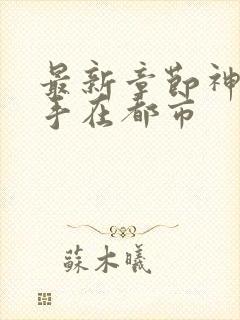 最新章节神
手在都市
蘇木曦